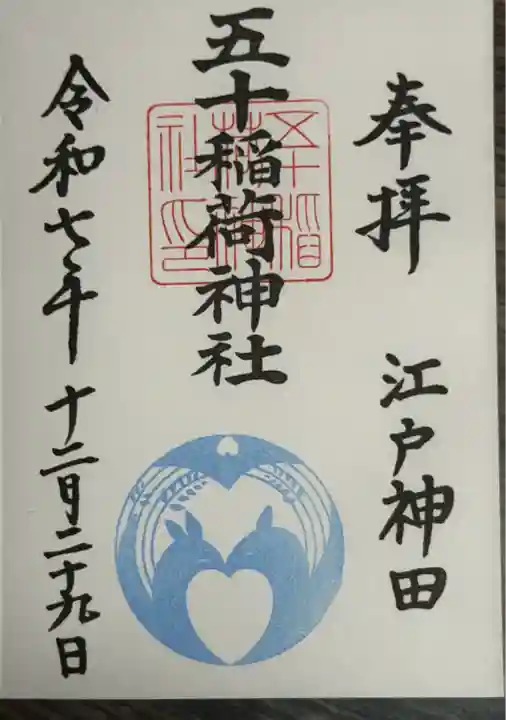 奉拝
江戸神田
五十稲荷神社
五十稲荷神社印
令和七年十二月二十九日